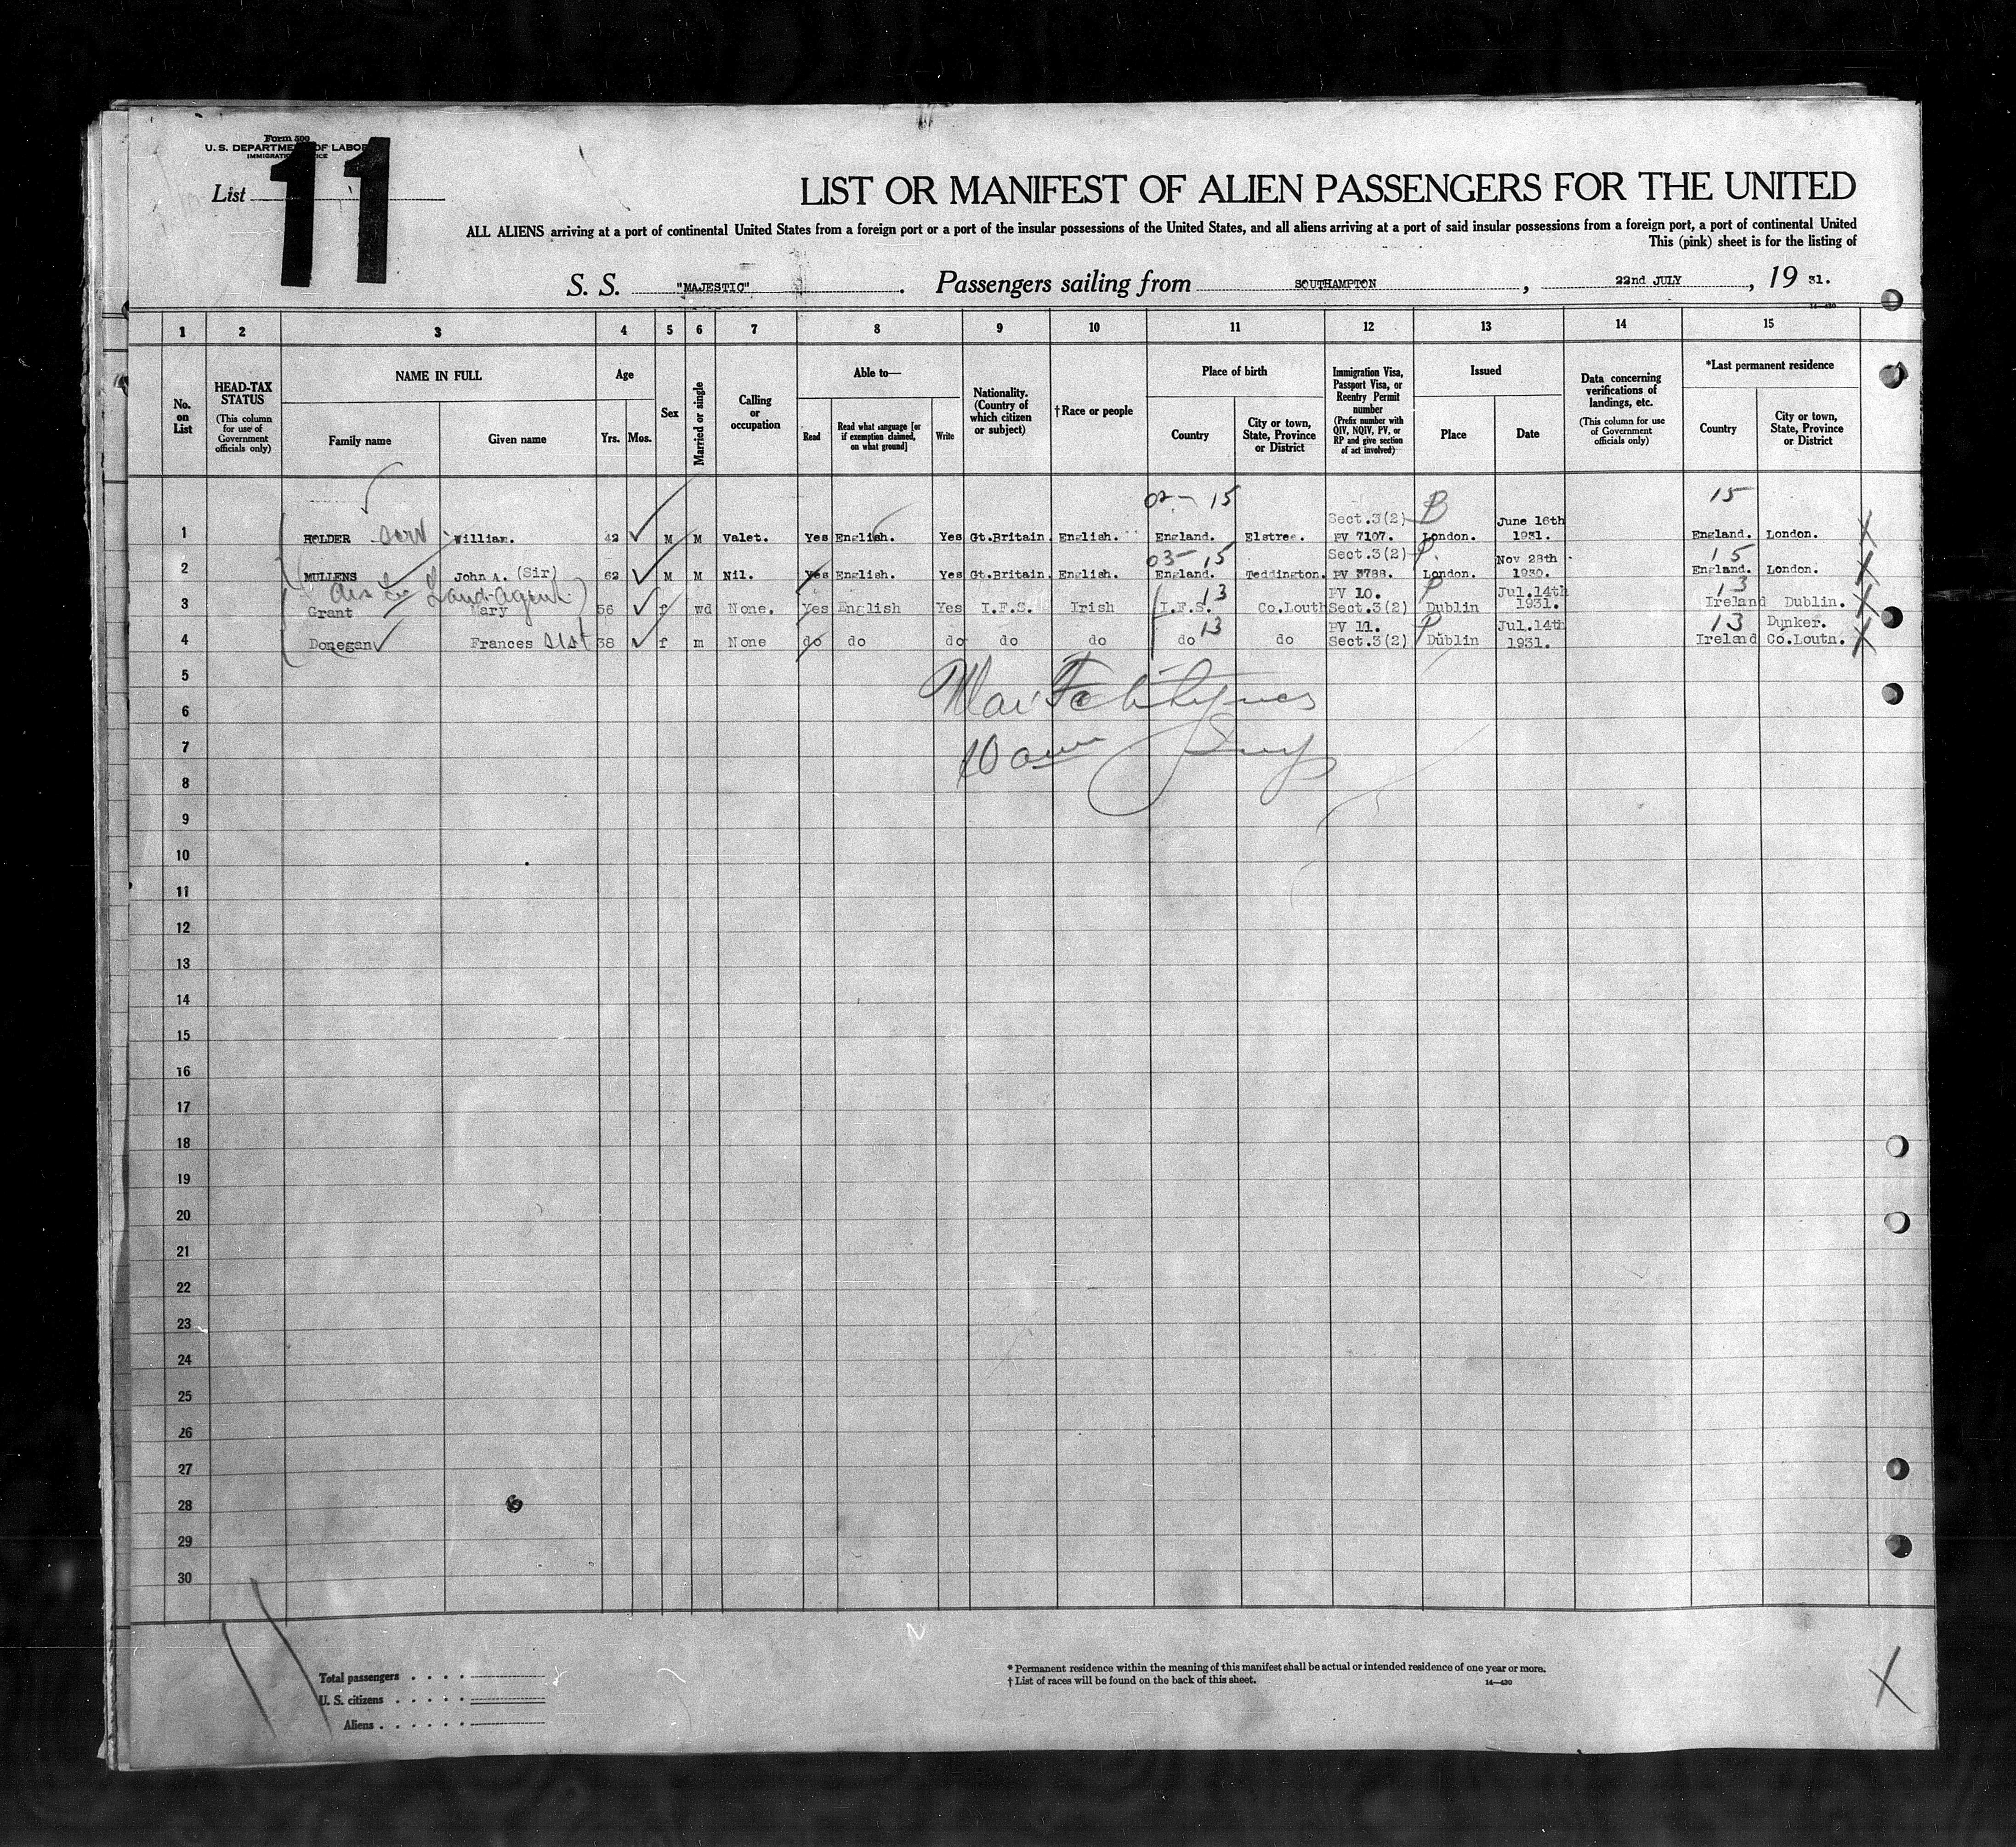 Form 500
U. S. DEPARTMENT OF LABOR
IMMIGRATION SERVICE
List 11
LIST OR MANIFEST OF ALIEN PASSENGERS FOR THE UNITED
ALL ALIENS arriving at a port of continental United States from a foreign port or a port of the insular possessions of the United States, and all aliens arriving at a port of said insular possessions from a foreign port, a port of continental United
This (pink) sheet is for the listing of
S. S. "MAJESTIC". Passengers sailing from SOUTHAMPTON, 22nd JULY, 19 31.
14—430
1 2 3 4 5 6 7 8 9 10 11 12 13 14 15
No. on List
HEAD-TAX STATUS (This column for use of Government officials only)
NAME IN FULL
Family name
Given name
Age
Yrs. Mos.
Sex
Married or single
Calling or occupation
Able to—
Read
Read what language [or if exemption claimed, on what ground]
Write
Nationality. (Country of which citizen or subject)
†Race or people
Place of birth
Country
City or town, State, Province or District
Immigration Visa, Passport Visa, or Reentry Permit number (Prefix number with QIV, NQIV, PV, or RP and give section of act involved)
Issued
Place
Date
Data concerning verifications of landings, etc. (This column for use of Government officials only)
*Last permanent residence
Country
City or town, State, Province or District
02 - 15 15
1 HOLDER serv William. 42 M M Valet. Yes English. Yes Gt.Britain. English. England. Elstree. Sect.3(2) PV 7107. B London. June 16th 1931. England. London.
03-15 15
2 MULLENS John A. (Sir) 62 M M Nil. Yes English. Yes Gt.Britain. English. England. Teddington. Sect.3(2) PV 3788. P London. Nov 28th 1930. England. London.
Land Agent
13 13
3 Grant Mary 56 f wd None. Yes English Yes I.F.S. Irish I.F.S. Co.Louth PV 10. Sect.3(2) P Dublin Jul.14th 1931. Ireland Dublin.
13 13
4 Donegan Frances 38 f m None do do do do do do do PV 11. Sect.3(2) P Dublin Jul.14th 1931. Ireland Dunker. Co.Loutn.
5
6
7
10 am
8
9
10
11
12
13
14
15
16
17
18
19
20
21
22
23
24
25
26
27
28
29
30
Total passengers
U. S. citizens
Aliens
* Permanent residence within the meaning of this manifest shall be actual or intended residence of one year or more.
† List of races will be found on the back of this sheet.
14—430